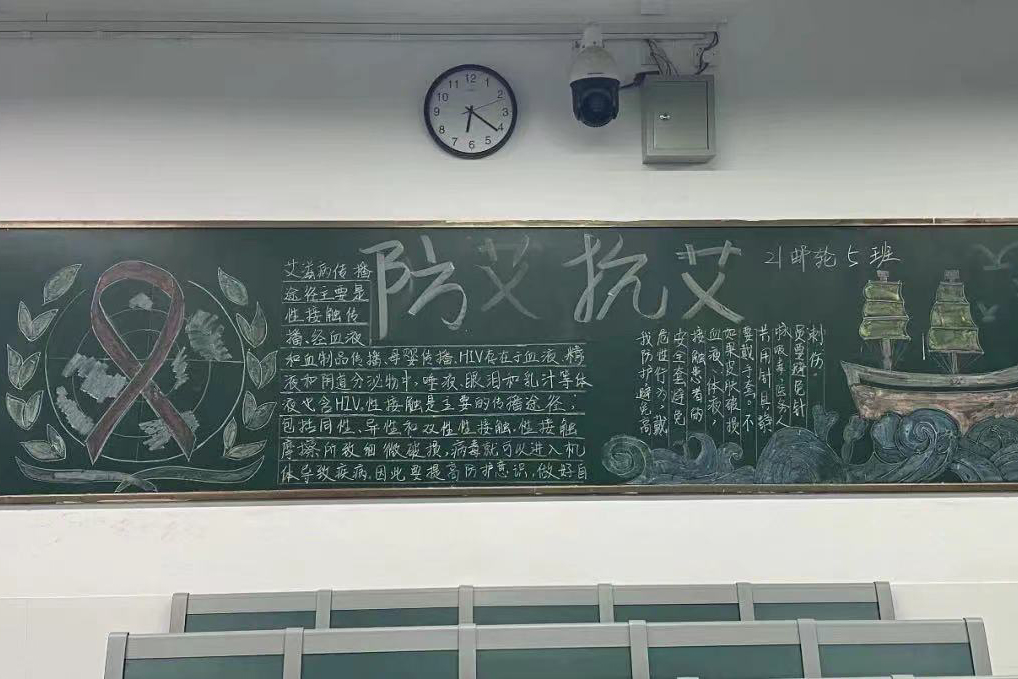 防艾抗艾
21邮轮5班
艾滋病传播
途径主要是
性接触传
播、经血液
和血制品传播、母婴传播。HIV存在于血液、精
液和阴道分泌物中，唾液、眼泪和乳汁等体
液也含HIV。性接触是主要的传播途径；
包括同性、异性和双性性接触。性接触
摩擦所致细微破损，病毒就可以进入机
体导致疾病。因此要提高防护意识，做好自
我防护，避免高
危性行为，戴
安全套，避免
接触患者的
血液、体液，
如果皮肤破损
要戴手套。不
共用针具静
脉吸毒，医务人
员要避免针
刺伤。
12 1 2 3 4 5 6 7 8 9 10 11